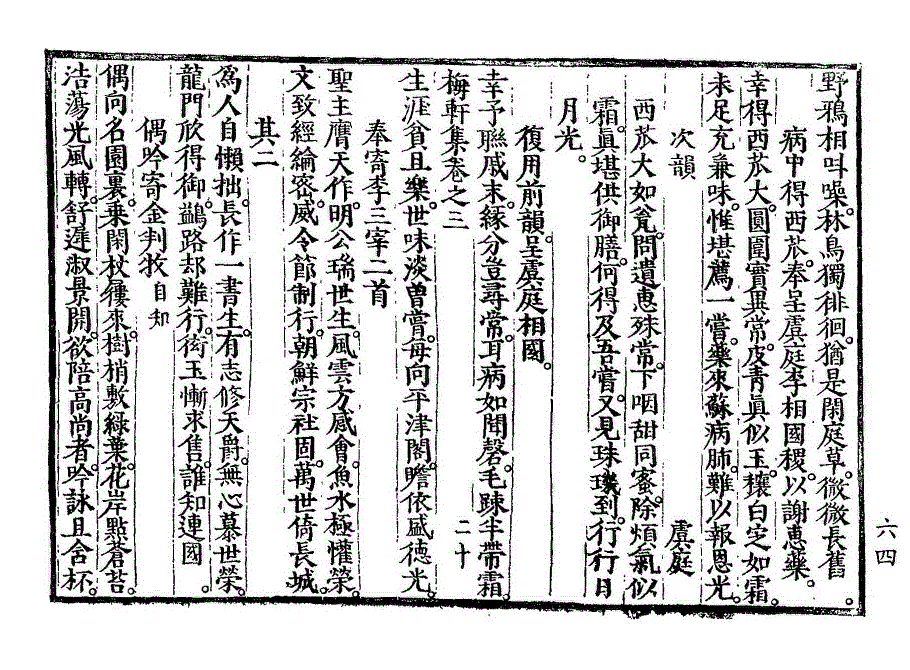 野鴉相叫噪。林鳥獨徘徊。猶是閑庭草。微微長舊
病中得西苽。奉呈虞庭李相國稷。以謝惠藥。
幸得西苽大。圓圍實異常。皮靑眞似玉。穰白定如霜。
未足充兼味。惟堪薦一嘗。藥來蘇病肺。難以報恩光。
次韻 虞庭
西苽大如瓮。問遺惠殊常。下咽甜同蜜。除煩氣似
霜。眞堪供御膳。何得及吾嘗。又見珠璣到。行行日
月光。
復用前韻。呈虞庭相國。
幸予聯戚末。緣分登尋常。耳病如聞磬。毛踈半帶霜。
梅軒集卷之三 二十
生涯貧且樂。世味淡曾嘗。每向平津閣。瞻依盛德光。
奉寄李三宰二首
聖主膺天作。明公瑞世生。風雲方感會。魚水極懽榮。
文致經綸密。威令節制行。朝鮮宗社固。萬世倚長城。
其二
爲人自懶拙。長作一書生。有志修天爵。無心慕世榮。
龍門欣得御。鷁路却難行。衒玉慚求售。誰知連國
偶吟寄金判牧自知
偶向名園裏。乘閑杖屨來。樹梢敷綠葉。花岸點蒼苔。
浩蕩光風轉。舒遲淑景開。欲陪高尙者。吟詠且含杯。
六四